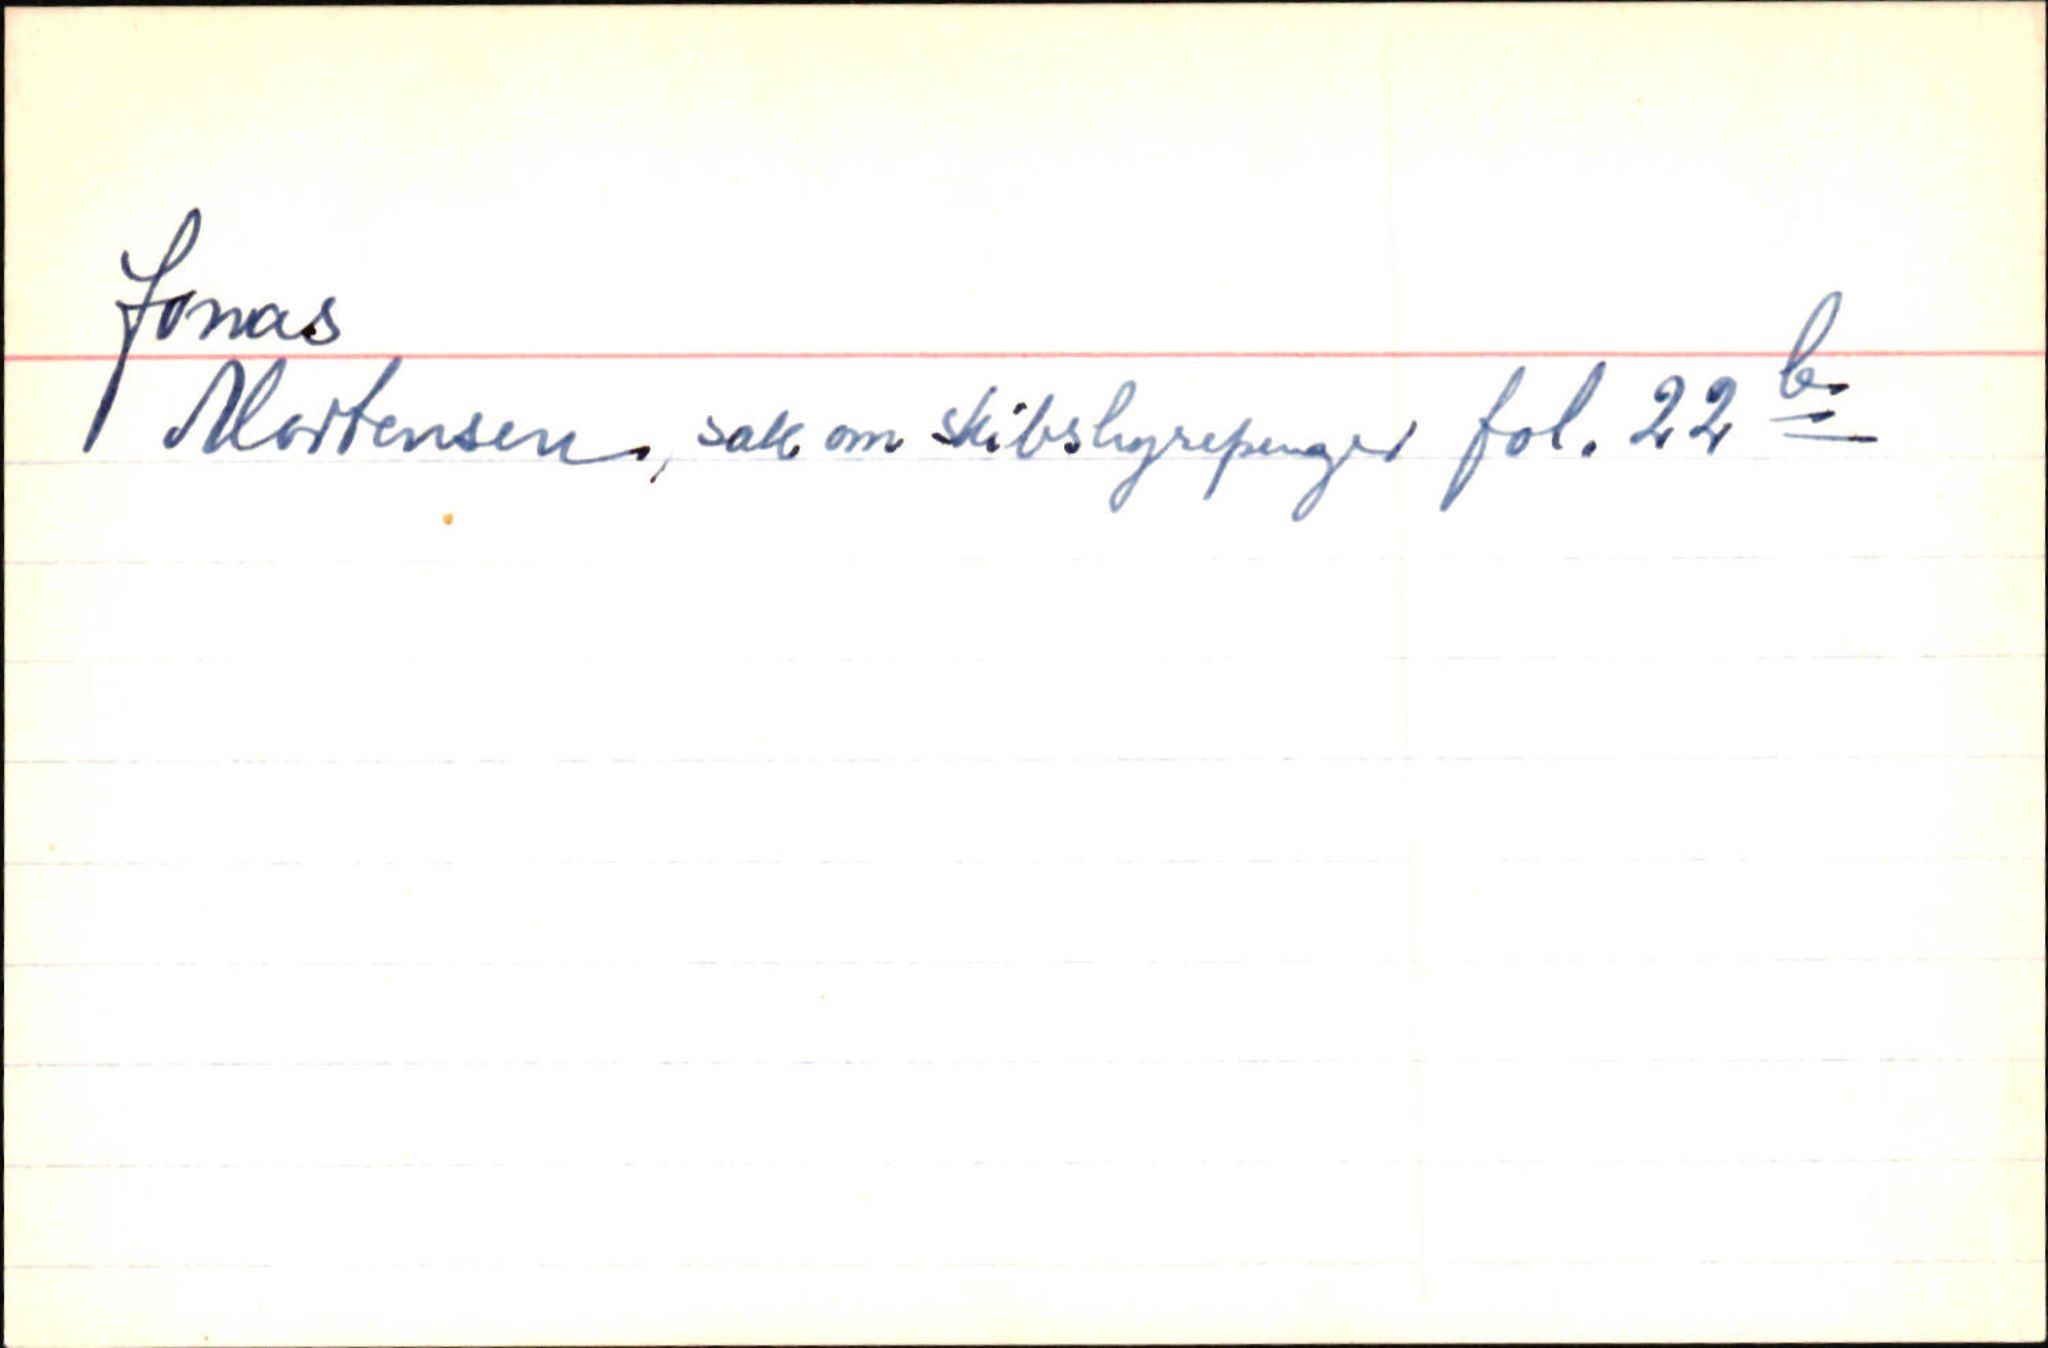 Jonas
Mortensen, sak om skibshyrepenger fol. 22 b.